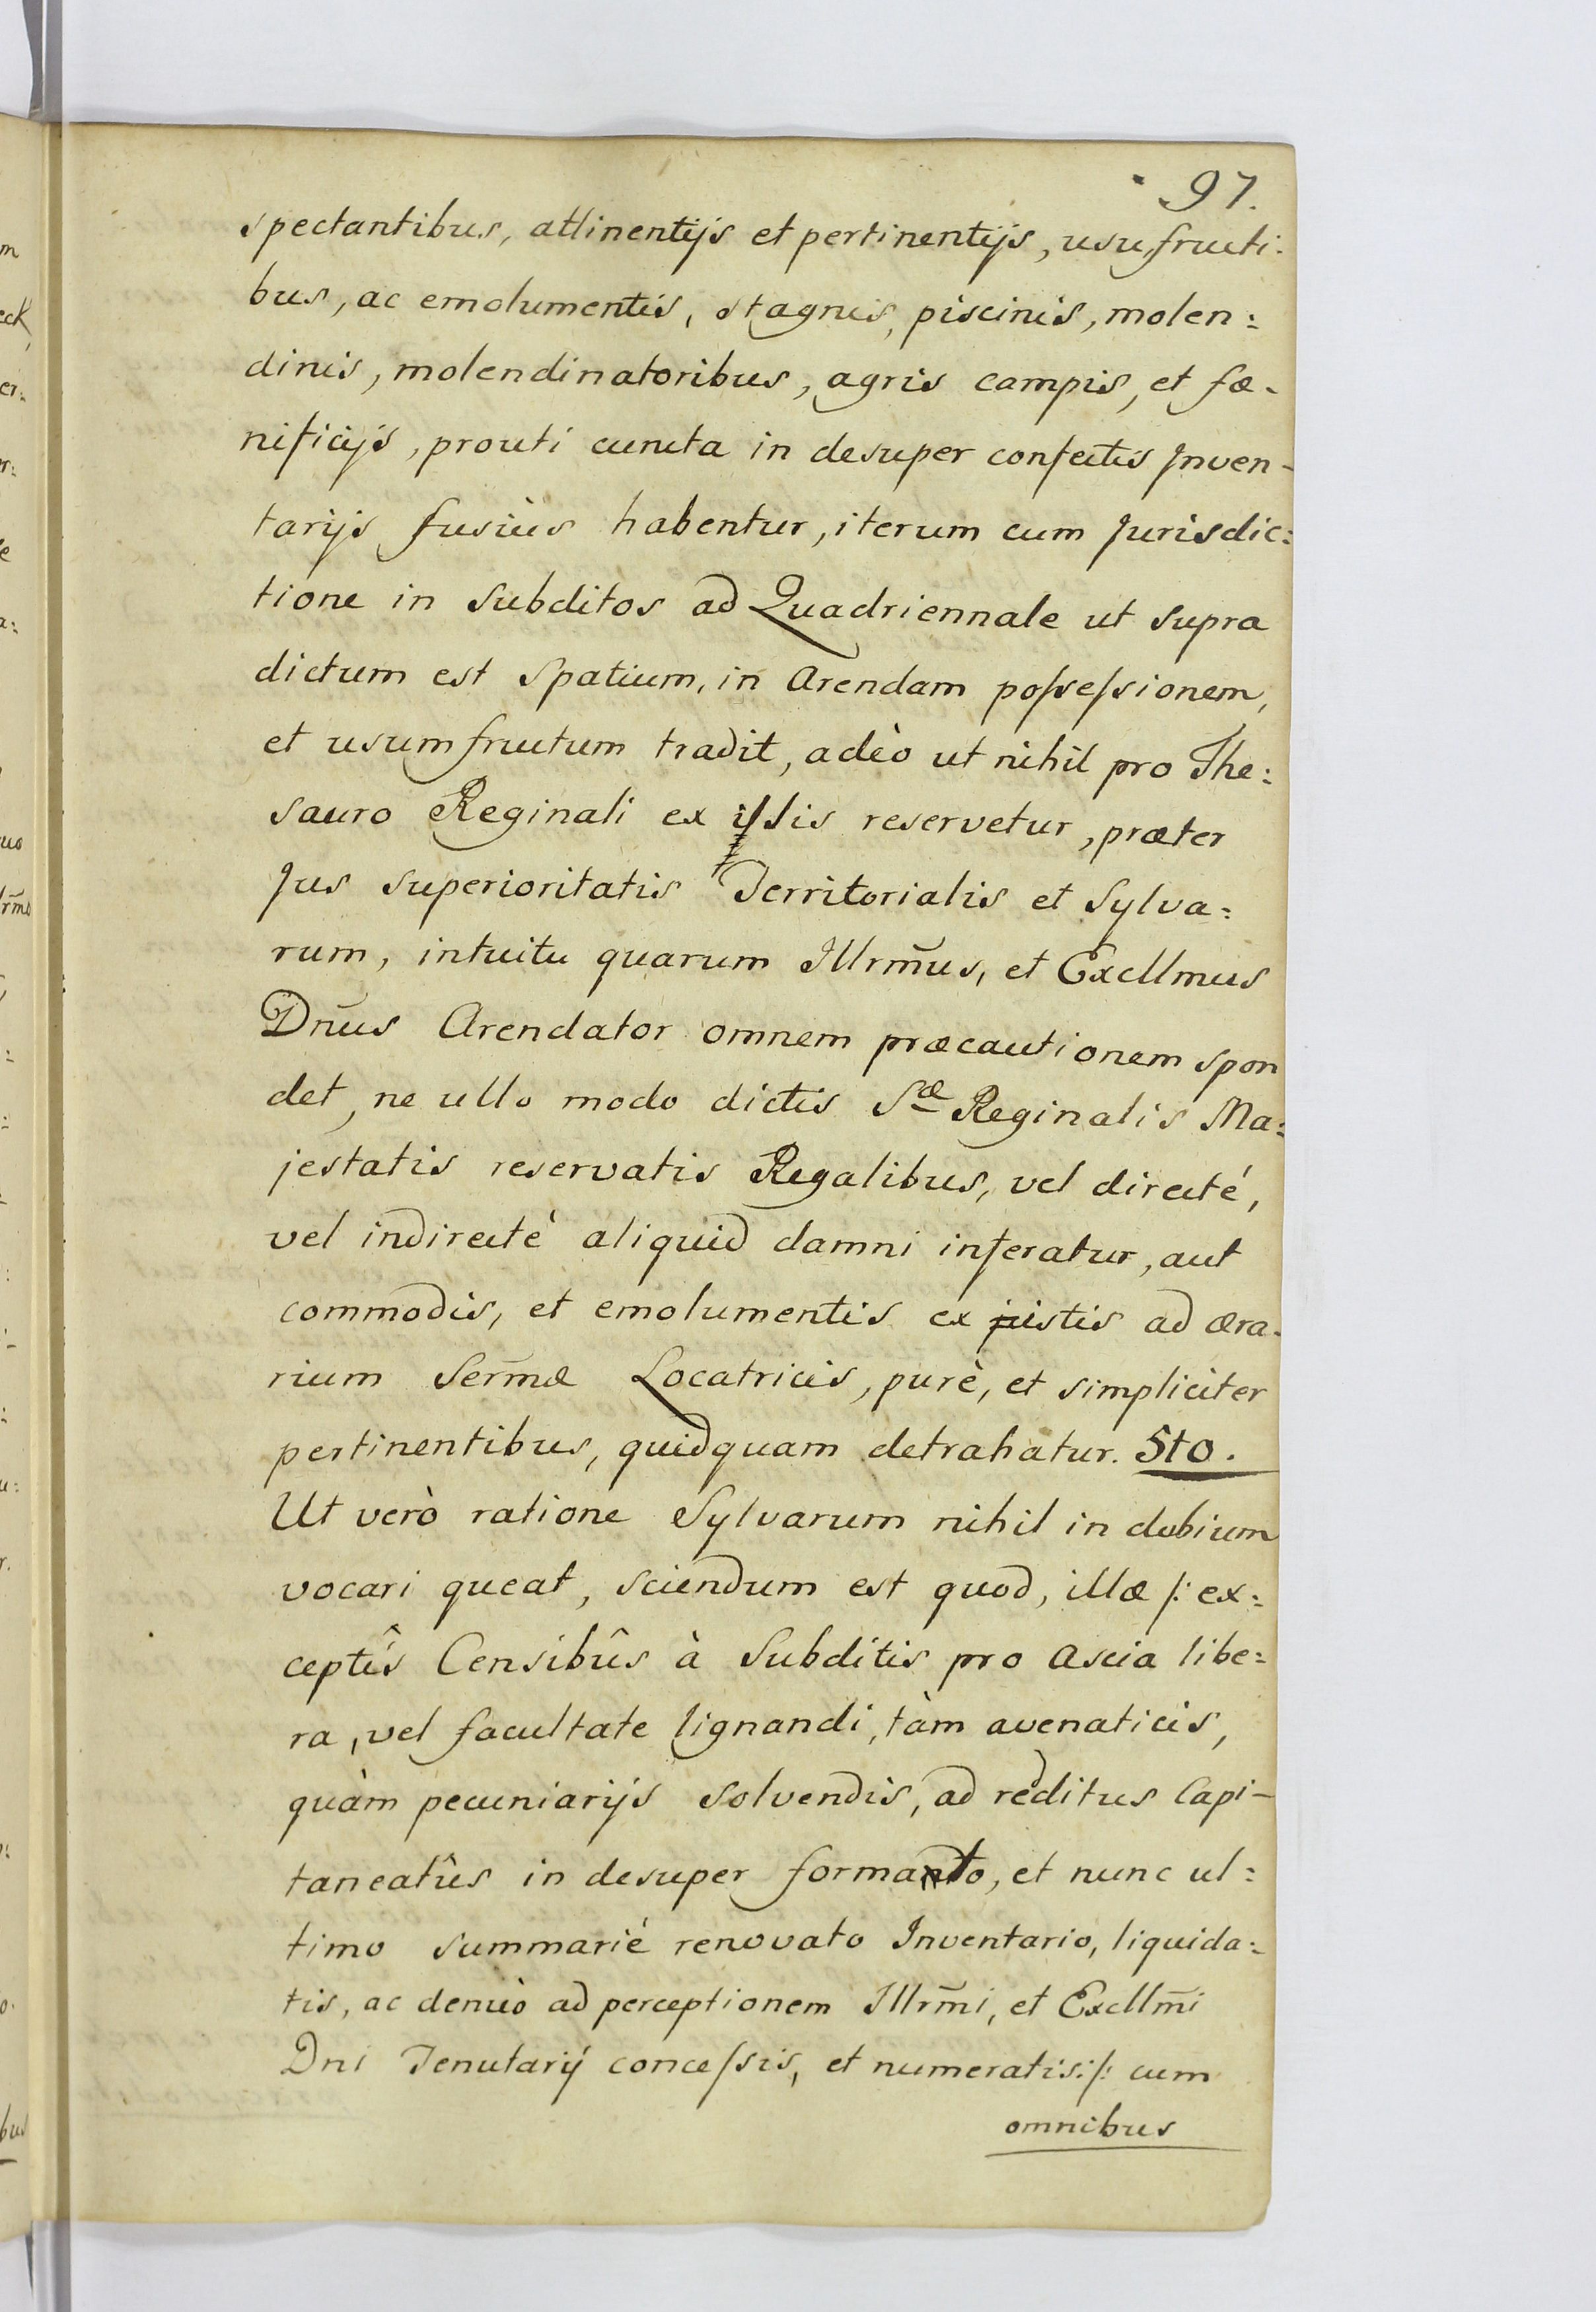 97.
spectantibus, attinentijs et pertinentijs, usufructi:
bus, ac emolumentis, stagnis, piscinis, molen:
dinis, molendinatoribus, agris campis, et fæ-
nificijs, prouti cuncta in desuper confectis Inven-
tarijs fusiùs habentur, iterum cum Jurisdic:
tione in Subditos ad Quadriennale ut supra
dictum est Spatium, in Arendam poſseſsionem,
et usumfructum tradit, adèo ut nihil pro The:
sauro Reginali ex istis reservetur, præter
Jus superioritatis Territorialis et Sylva:
rum, intuitu quarum Illrm̃us, et Excllmus
Dñus Arendator omnem præcautionem spon
det, ne ullo modo dictis Sæ Reginalis Ma:
jestatis reservatis Regalibus, vel directé,
vel indirectè aliquid damni inferatur, aut
commodis, et emolumentis ex istis ad æra-
rium Serm̃æ Locatricis, purè, et simpliciter
pertinentibus, quidquam detrahatur. 5to.
Ut verò ratione Sylvarum nihil in dubium
vocari queat, sciendum est quod, illæ /: ex:
ceptîs Censibûs à Subditis pro Ascia libe:
ra, vel facultate lignandi, tàm avenaticis,
quàm pecuniarijs solvendis, ad reditus Capi-
taneatûs in desuper formato, et nunc ul:
timo summarié renovato Inventario, liquida:
tis, ac denuò ad perceptionem Illrm̃i, et Excllm̃i
Dni Tenutarij conceſsis, et numeratis :/: cum
omnibus